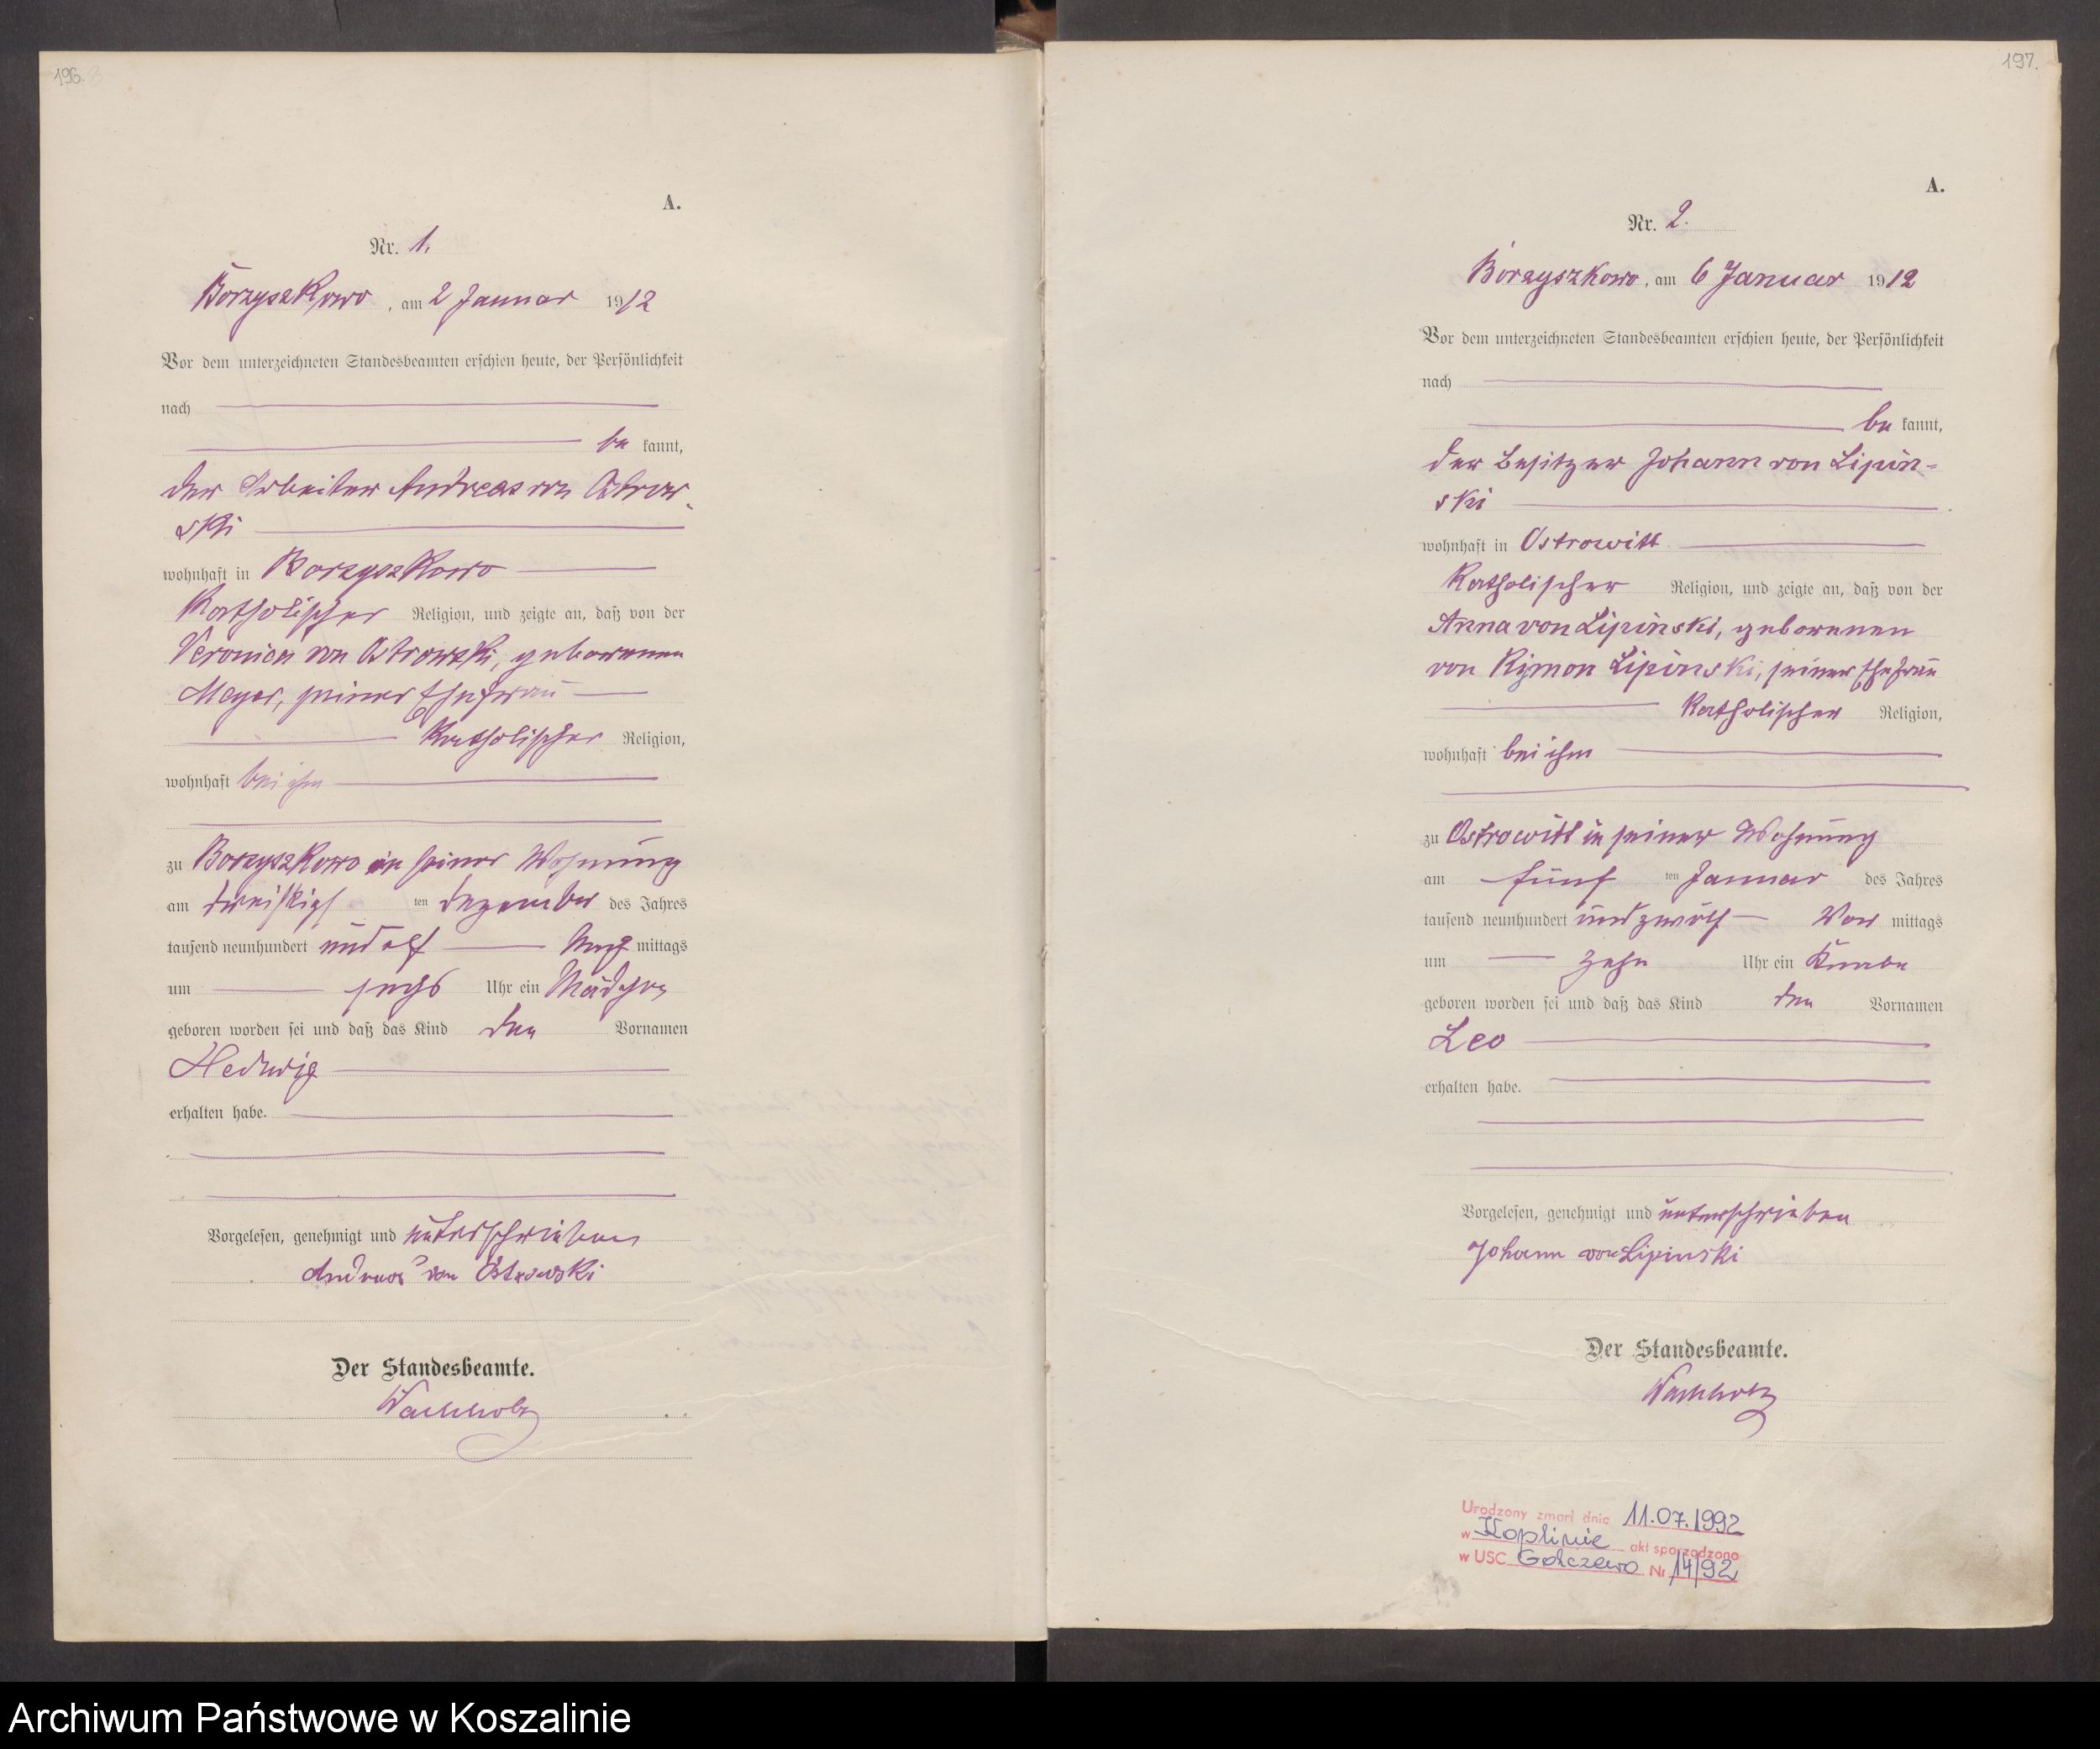 196.
A.
Nr. 1.
Borzyszkowo, am 2 Januar 1912
Vor dem unterzeichneten Standesbeamten erschien heute, der Persönlichkeit
nach
be kannt,
der Arbeiter Andreas von Ostrow-
ski
wohnhaft in Borzyszkowo
katholischer Religion, und zeigte an, daß von der
Veronica von Ostrowski, geborenen
Meyer, seiner Ehefrau
katholischer Religion,
wohnhaft bei ihm
zu Borzyszkowo in seiner Wohnung
am dreißigsten Dezember des Jahres
tausend neunhundert und elf Nach mittags
um sechs Uhr ein Mädchen
geboren worden sei und daß das Kind den Vornamen
Hedwig
erhalten habe.
Vorgelesen, genehmigt und unterschrieben
Andreas von Ostrowski
Der Standesbeamte.
Wachholz
197.
A.
Nr. 2.
Borzyszkowo, am 6 Januar 1912
Vor dem unterzeichneten Standesbeamten erschien heute, der Persönlichkeit
nach
be kannt,
der Besitzer Johann von Lipin-
ski
wohnhaft in Ostrowitt
katholischer Religion, und zeigte an, daß von der
Anna von Lipinski, geborenen
von Rymon Lipinski, seiner Ehefrau
katholischer Religion,
wohnhaft bei ihm
zu Ostrowitt in seiner Wohnung
am fünf ten Januar des Jahres
tausend neunhundert und zwölf Vor mittags
um zehn Uhr ein Knabe
geboren worden sei und daß das Kind den Vornamen
Leo
erhalten habe.
Vorgelesen, genehmigt und unterschrieben
Johann von Lipinski
Der Standesbeamte.
Wachholz
Urodzony zmarł dnia 11.07.1992
w Koplinie akt sporządzono
w USC Gołczewo Nr 14/92
Archiwum Państwowe w Koszalinie